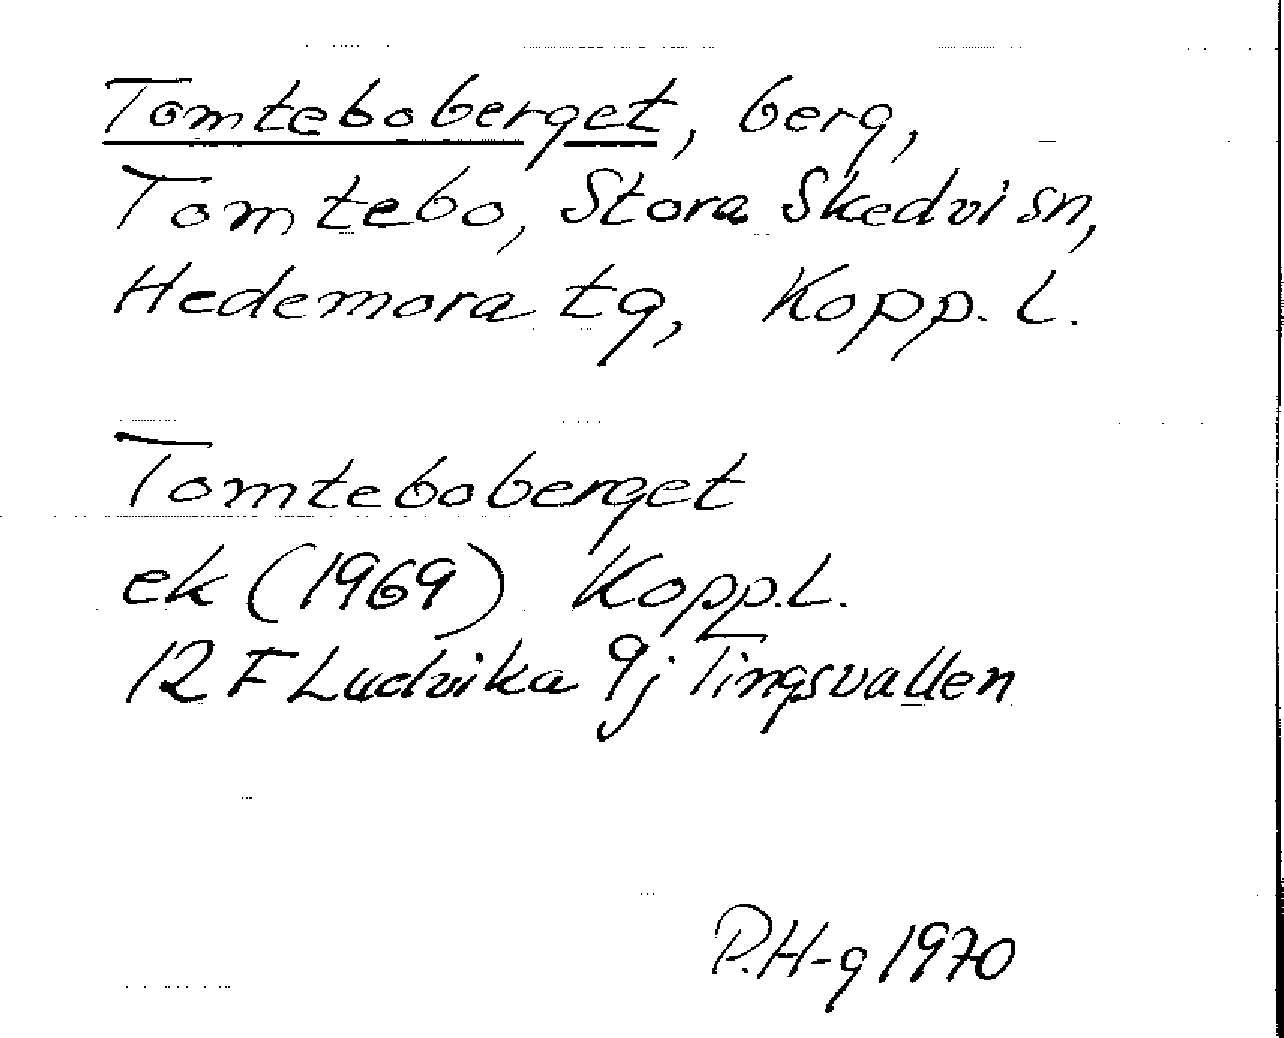 Tomteboberget, berg,
Tomtebo, Stora Skedvi sn,
Hedemora tg, Kopp. L.
Tomteboberget
ek (1969) Kopp.L.
12 F Ludvika 9j Tingsvallen
P.H-g 1970